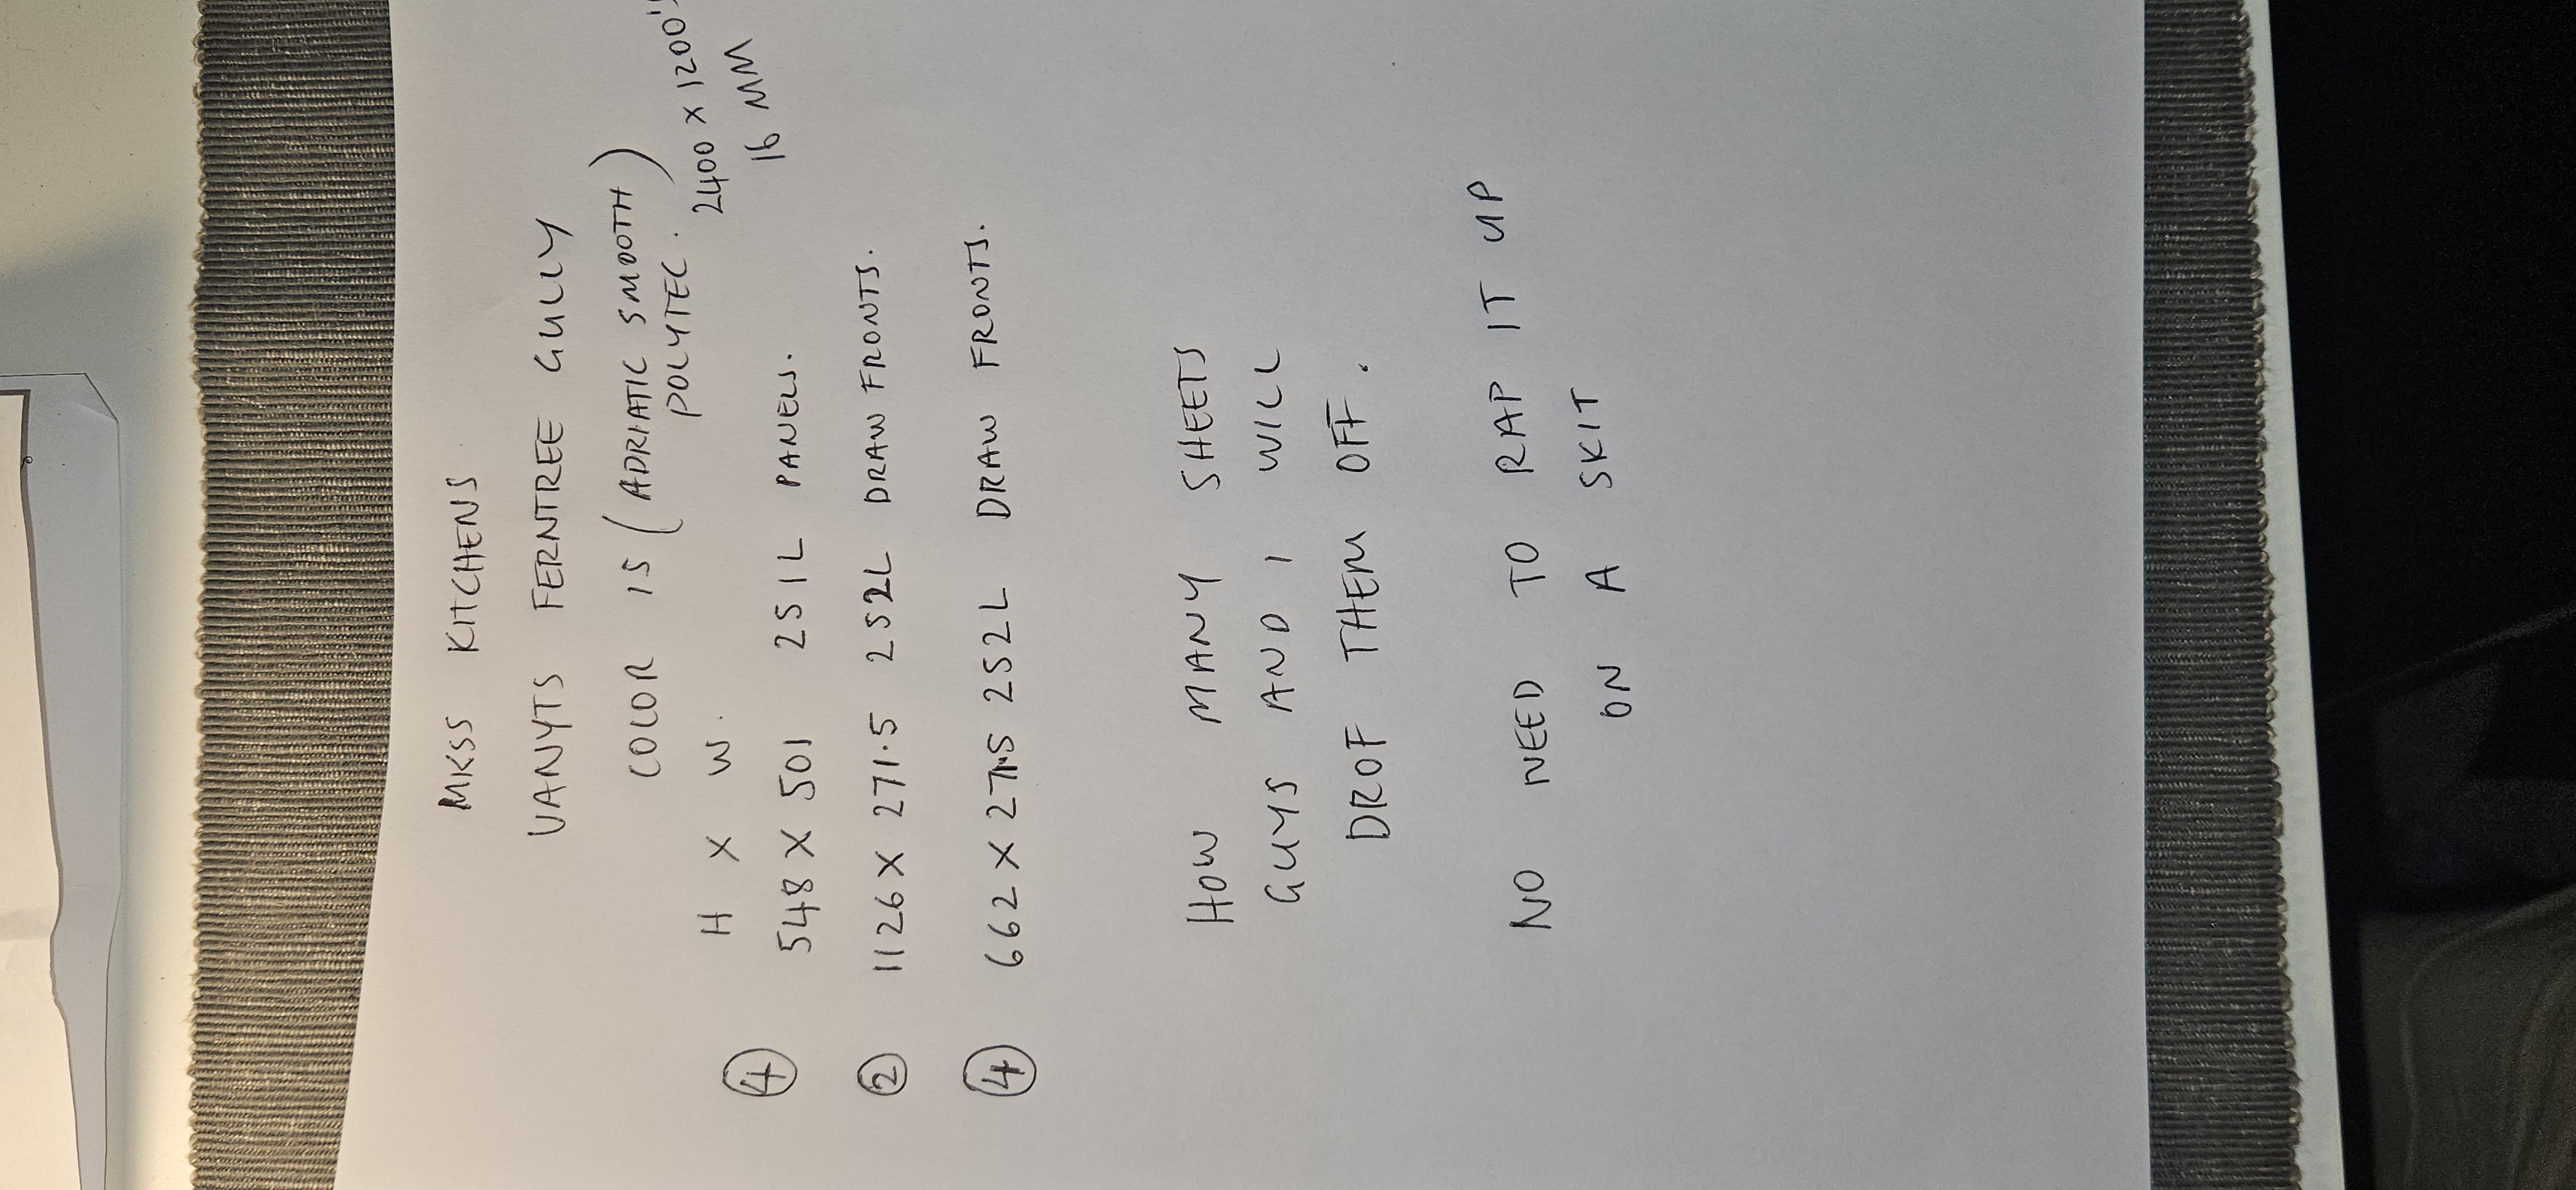 MKSS KITCHENS
VANYTS FERNTREE GULLY
COLOR IS (ADRIATIC SMOOTH)
POLYTEC.
2400 X 1200's
16 MM
H X W.
4 548 X 501 2S 1L PANELS.
2 1126 X 271.5 2S2L DRAW FRONTS.
4 662 X 271.5 2S2L DRAW FRONTS.
HOW MANY SHEETS
GUYS AND I WILL
DROF THEM OFF.
NO NEED TO RAP IT UP
ON A SKIT